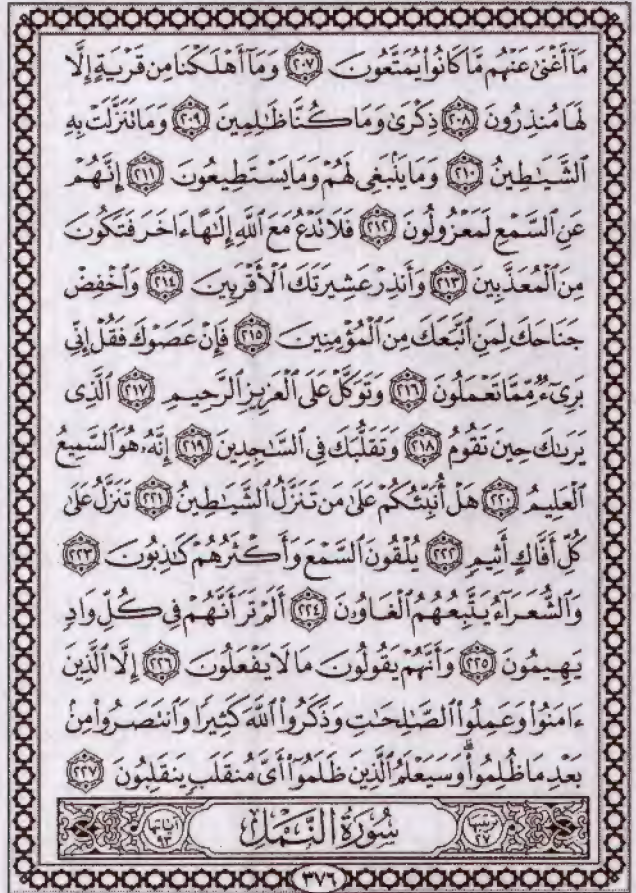 مَآ أَغْنَىٰ عَنْهُم مَّا كَانُوا۟ يُمَتَّعُونَ ﴿٢٠٧﴾ وَمَآ أَهْلَكْنَا مِن قَرْيَةٍ إِلَّا
لَهَا مُنذِرُونَ ﴿٢٠٨﴾ ذِكْرَىٰ وَمَا كُنَّا ظَٰلِمِينَ ﴿٢٠٩﴾ وَمَا تَنَزَّلَتْ بِهِ
ٱلشَّيَٰطِينُ ﴿٢١٠﴾ وَمَا يَنۢبَغِى لَهُمْ وَمَا يَسْتَطِيعُونَ ﴿٢١١﴾ إِنَّهُمْ
عَنِ ٱلسَّمْعِ لَمَعْزُولُونَ ﴿٢١٢﴾ فَلَا تَدْعُ مَعَ ٱللَّهِ إِلَٰهًا ءَاخَرَ فَتَكُونَ
مِنَ ٱلْمُعَذَّبِينَ ﴿٢١٣﴾ وَأَنذِرْ عَشِيرَتَكَ ٱلْأَقْرَبِينَ ﴿٢١٤﴾ وَٱخْفِضْ
جَنَاحَكَ لِمَنِ ٱتَّبَعَكَ مِنَ ٱلْمُؤْمِنِينَ ﴿٢١٥﴾ فَإِنْ عَصَوْكَ فَقُلْ إِنِّى
بَرِىٓءٌ مِّمَّا تَعْمَلُونَ ﴿٢١٦﴾ وَتَوَكَّلْ عَلَى ٱلْعَزِيزِ ٱلرَّحِيمِ ﴿٢١٧﴾ ٱلَّذِى
يَرَىٰكَ حِينَ تَقُومُ ﴿٢١٨﴾ وَتَقَلُّبَكَ فِى ٱلسَّٰجِدِينَ ﴿٢١٩﴾ إِنَّهُۥ هُوَ ٱلسَّمِيعُ
ٱلْعَلِيمُ ﴿٢٢٠﴾ هَلْ أُنَبِّئُكُمْ عَلَىٰ مَن تَنَزَّلُ ٱلشَّيَٰطِينُ ﴿٢٢١﴾ تَنَزَّلُ عَلَىٰ
كُلِّ أَفَّاكٍ أَثِيمٍ ﴿٢٢٢﴾ يُلْقُونَ ٱلسَّمْعَ وَأَكْثَرُهُمْ كَٰذِبُونَ ﴿٢٢٣﴾
وَٱلشُّعَرَآءُ يَتَّبِعُهُمُ ٱلْغَاوُۥنَ ﴿٢٢٤﴾ أَلَمْ تَرَ أَنَّهُمْ فِى كُلِّ وَادٍ
يَهِيمُونَ ﴿٢٢٥﴾ وَأَنَّهُمْ يَقُولُونَ مَا لَا يَفْعَلُونَ ﴿٢٢٦﴾ إِلَّا ٱلَّذِينَ
ءَامَنُوا۟ وَعَمِلُوا۟ ٱلصَّٰلِحَٰتِ وَذَكَرُوا۟ ٱللَّهَ كَثِيرًا وَٱنتَصَرُوا۟ مِنۢ
بَعْدِ مَا ظُلِمُوا۟ ۗ وَسَيَعْلَمُ ٱلَّذِينَ ظَلَمُوٓا۟ أَىَّ مُنقَلَبٍ يَنقَلِبُونَ ﴿٢٢٧﴾
ترتيبها ٢٧ سُورَةُ النَّمْلِ آياتها ٩٣
٣٧٦